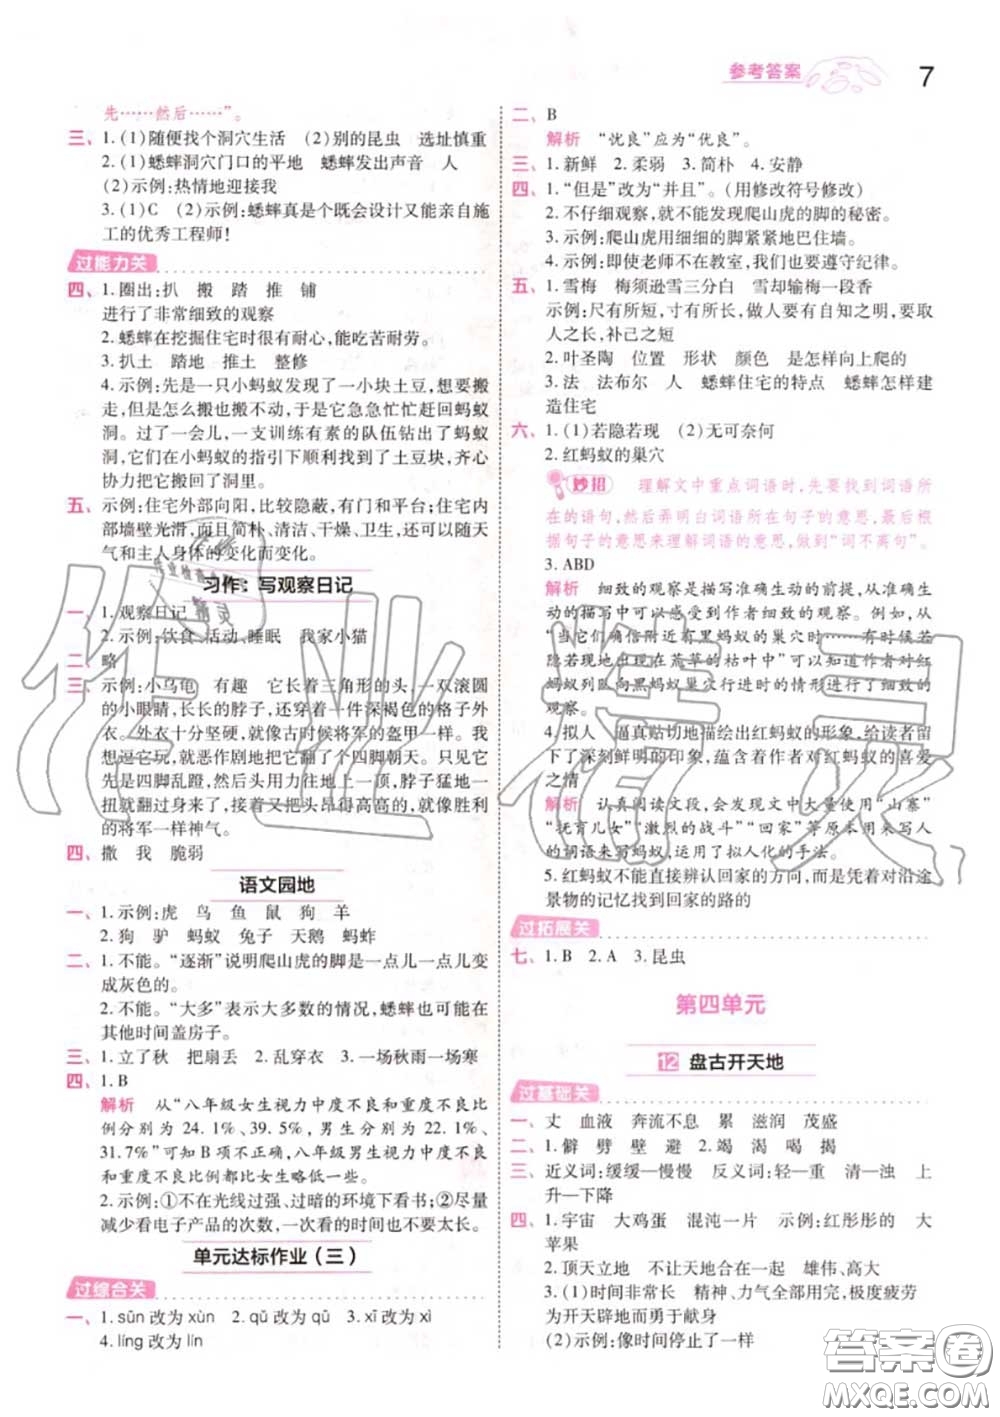 参考答案
7
先……然后……”。
三、1.(1)随便找个洞穴生活 (2)别的昆虫 选址慎重
2.(1)蟋蟀洞穴门口的平地 蟋蟀发出声音 人
(2)示例:热情地迎接我
3.(1)C (2)示例:蟋蟀真是个既会设计又能亲自施
工的优秀工程师!
过能力关
四、1.圈出:扒 搬 踏 推 铺
进行了非常细致的观察
2.蟋蟀在挖掘住宅时很有耐心,能吃苦耐劳。
3.扒土 踏地 推土 整修
4.示例:先是一只小蚂蚁发现了一小块土豆,想要搬
走,但是怎么搬也搬不动,于是它急急忙忙赶回蚂蚁
洞。过了一会儿,一支训练有素的队伍钻出了蚂蚁
洞,它们在小蚂蚁的指引下顺利找到了土豆块,齐心
协力把它搬回了洞里。
五、示例:住宅外部向阳,比较隐蔽,有门和平台;住宅内
部墙壁光滑,而且简朴、清洁、干燥、卫生,还可以随天
气和主人身体的变化而变化。
习作：写观察日记
一、1.观察日记
2.示例:饮食 活动 睡眠 我家小猫
二、略
三、示例:小乌龟 有趣 它长着三角形的头,一双滚圆
的小眼睛,长长的脖子,还穿着一件深褐色的格子外
衣。外衣十分坚硬,就像古时候将军的盔甲一样。我
想逗它玩,就恶作剧地把它翻了个四脚朝天。只见它
先是四脚乱蹬,然后头用力往地上一顶,脖子猛地一
扭就翻了过来,接着又把头昂得高高的,就像胜利
的将军一样神气。
四、撒 我 脆弱
语文园地
一、1.示例:虎 鸟 鱼 鼠 狗 羊
2.狗 驴 蚂蚁 兔子 天鹅 蚂蚱
二、1.不能。“逐渐”说明爬山虎的脚是一点儿一点儿变
成灰色的。
2.不能。“大多”表示大多数的情况,蟋蟀也可能在
其他时间盖房子。
三、1.立了秋 把扇丢 2.乱穿衣 3.一场秋雨一场寒
四、1.B
解析 从“八年级女生视力中度不良和重度不良比
例分别为 24.1%、39.5%,男生分别为 22.1%、
31.7%”可知B项不正确,八年级男生视力中度不良
和重度不良比例都比女生略低一些。
2.示例:①不在光线过强、过暗的环境下看书;②尽量
减少看电子产品的次数,一次看的时间也不要太长。
单元达标作业（三）
过综合关
一、1.sūn 改为 xùn 2.qǔ 改为 qū 3.xī 改为 xì
4.líng 改为 lín
二、B
解析 “忧良”应为“优良”。
三、1.新鲜 2.柔弱 3.简朴 4.安静
四、1.“但是”改为“并且”。(用修改符号修改)
2.不仔细观察,就不能发现爬山虎的脚的秘密。
3.示例:爬山虎用细细的脚紧紧地巴住墙。
4.示例:即使老师不在教室,我们也要遵守纪律。
五、1.雪梅 梅须逊雪三分白 雪却输梅一段香
示例:尺有所短,寸有所长,做人要有自知之明,要取
人之长,补己之短
2.叶圣陶 位置 形状 颜色 是怎样向上爬的
3.法 法布尔 人 蟋蟀住宅的特点 蟋蟀怎样建
造住宅
六、1.(1)若隐若现 (2)无可奈何
2.红蚂蚁的巢穴
妙招 理解文中重点词语时,先要找到词语所
在的语句,然后弄明白词语所在句子的意思,最后根
据句子的意思来理解词语的意思,做到“词不离句”。
3.ABD
解析 细致的观察是描写准确生动的前提,从准确生
动的描写中可以感受到作者细致的观察。例如,从
“当它们确信附近有黑蚂蚁的巢穴时……有时候若
隐若现地出现在荒草的枯叶中”可以看出作者对红
蚂蚁列队向黑蚂蚁巢穴行进时的情形进行了细致的
观察。
4.拟人 逼真贴切地描绘出红蚂蚁的形象,给读者留
下了深刻鲜明的印象,蕴含着作者对红蚂蚁的喜爱
之情
解析 认真阅读文段,会发现文中大量使用“山寨”
“抚育儿女”“激烈的战斗”“回家”等原本用来写人
的词语来写蚂蚁,运用了拟人化的手法。
5.红蚂蚁不能直接辨认回家的方向,而是凭着对沿途
景物的记忆找到回家的路的
过拓展关
七、1.B 2.A 3.昆虫
第四单元
12 盘古开天地
过基础关
一、丈 血液 奔流不息 累 滋润 茂盛
二、1.僻 劈 壁 避 2.竭 渴 喝 揭
三、近义词:缓缓—慢慢 反义词:轻—重 清—浊 上
升—下降
四、1.宇宙 大鸡蛋 混沌一片 示例:红彤彤的 大
苹果
2.顶天立地 不让天地合在一起 雄伟、高大
3.(1)时间非常长 精神、力气全部用完,极度疲劳
为开天辟地而勇于献身
(2)示例:像时间停止了一样
作业精灵
答案圈
MXQE.COM